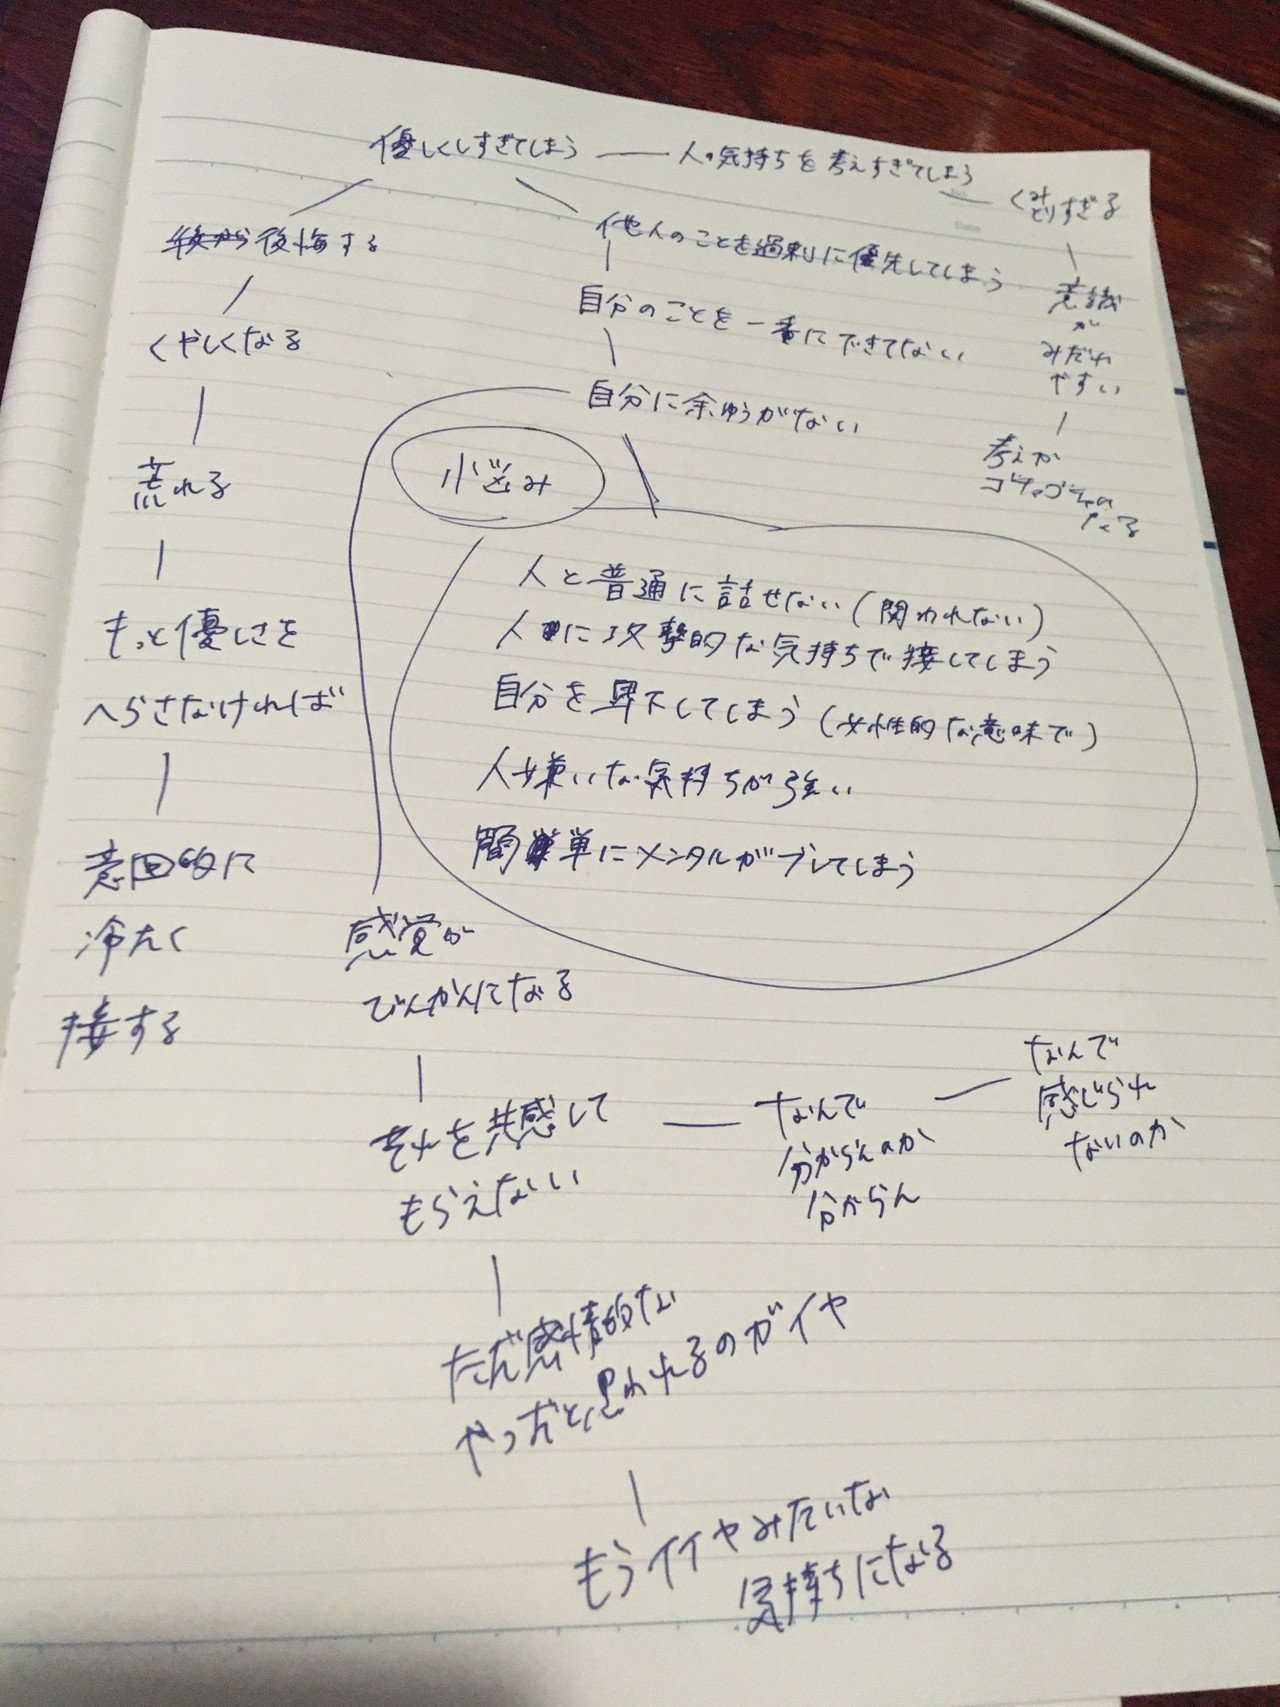 優しくしすぎてしまう
人の気持ちを考えすぎてしまう
くみ
とりすぎる
意識
が
みだれ
やすい
考えが
ゴチャゴチャに
なる
後から後悔する
くやしくなる
荒れる
もっと優しさを
へらさなければ
意図的に
冷たく
接する
他人のことを過剰に優先してしまう
自分のことを一番にできてない
自分に余ゆうがない
悩み
人と普通に話せない(関われない)
人に攻撃的な気持ちで接してしまう
自分を卑下してしまう(女性的な意味で)
人嫌いな気持ちが強い
簡単にメンタルがブレてしまう
感覚が
びんかんになる
それを共感して
もらえない
なんで
分からんのか
分からん
なんで
感じられ
ないのか
ただ感情的な
やつだと思われるのがイヤ
もうイイヤみたいな
気持ちになる